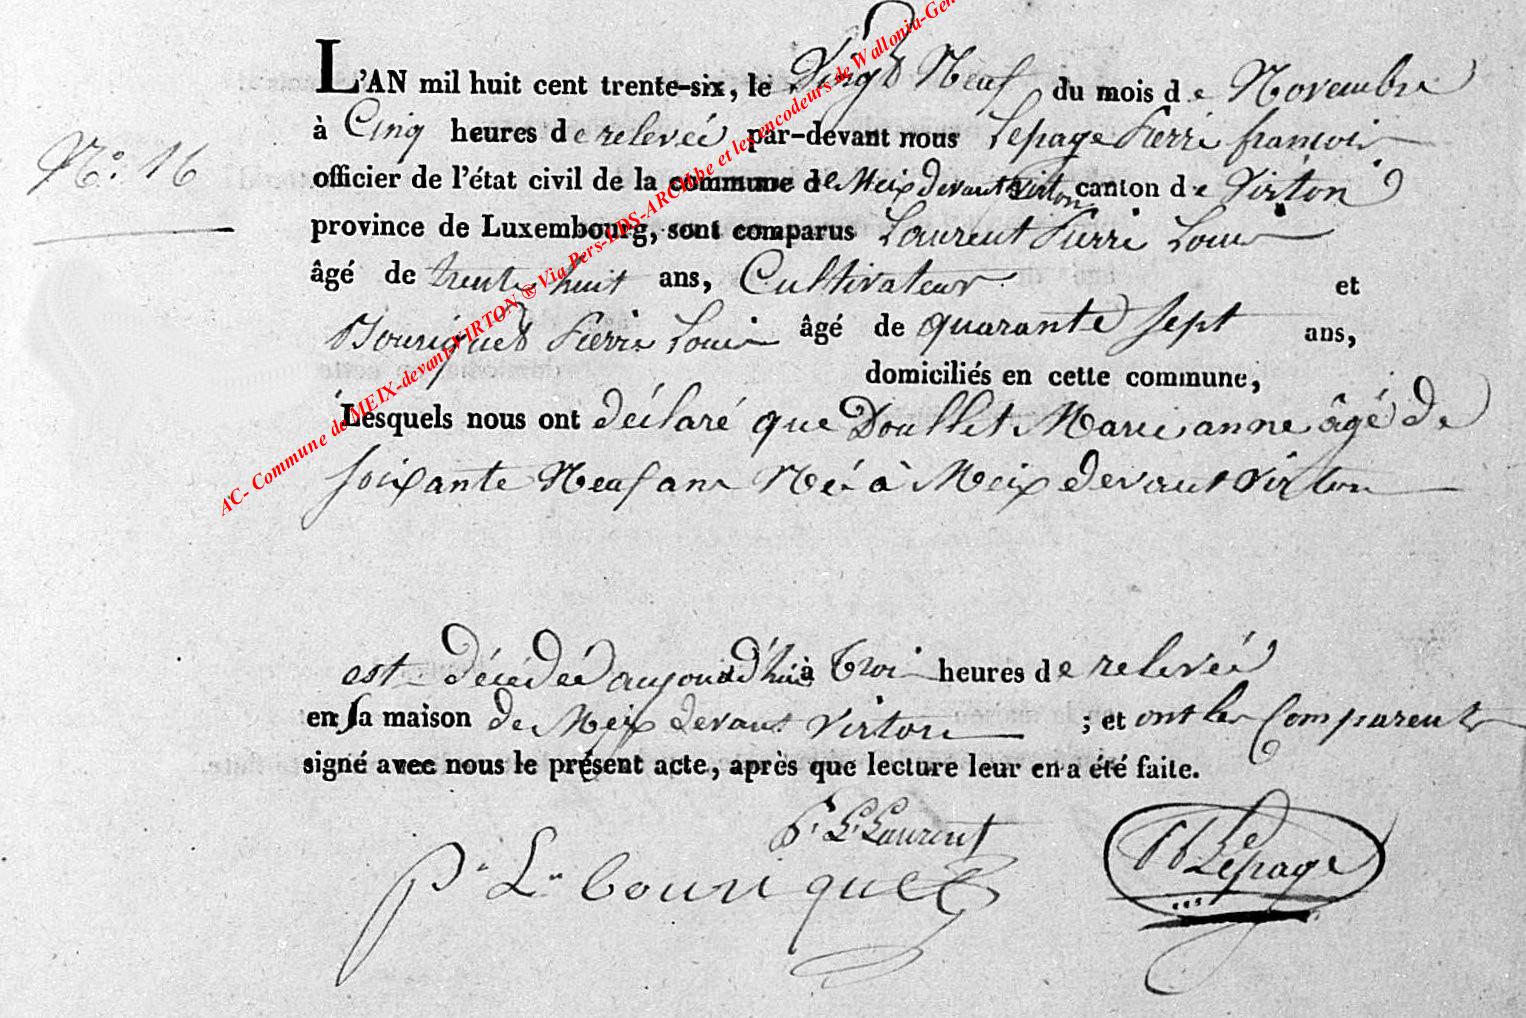 L'AN mil huit cent trente-six, le Vingt Neuf du mois de Novembre
à Cinq heures de relevée par-devant nous Lepage Pierre françois
N° 16
officier de l'état civil de la commune de Meix devant virton canton de Virton
province de Luxembourg, sont comparus Laurent Pierre Louis
âgé de trente huit ans, Cultivateur et
Bouriquet Pierre Louis âgé de quarante sept ans,
domiciliés en cette commune,
Lesquels nous ont déclaré que Doullet Marie anne âgé de
soixante Neuf ans Né à Meix devant Virton
est décédée aujourd'hui à Trois heures de relevée
en sa maison de Meix devant Virton ; et ont les Comparents
signé avec nous le présent acte, après que lecture leur en a été faite.
P. L. Laurent
P. L. bouriquet
Lepage
AC- Commune de MEIX-devant-VIRTON ® Via Pers-EDS-ARCH.be et les encodeurs de Wallonia-Gen